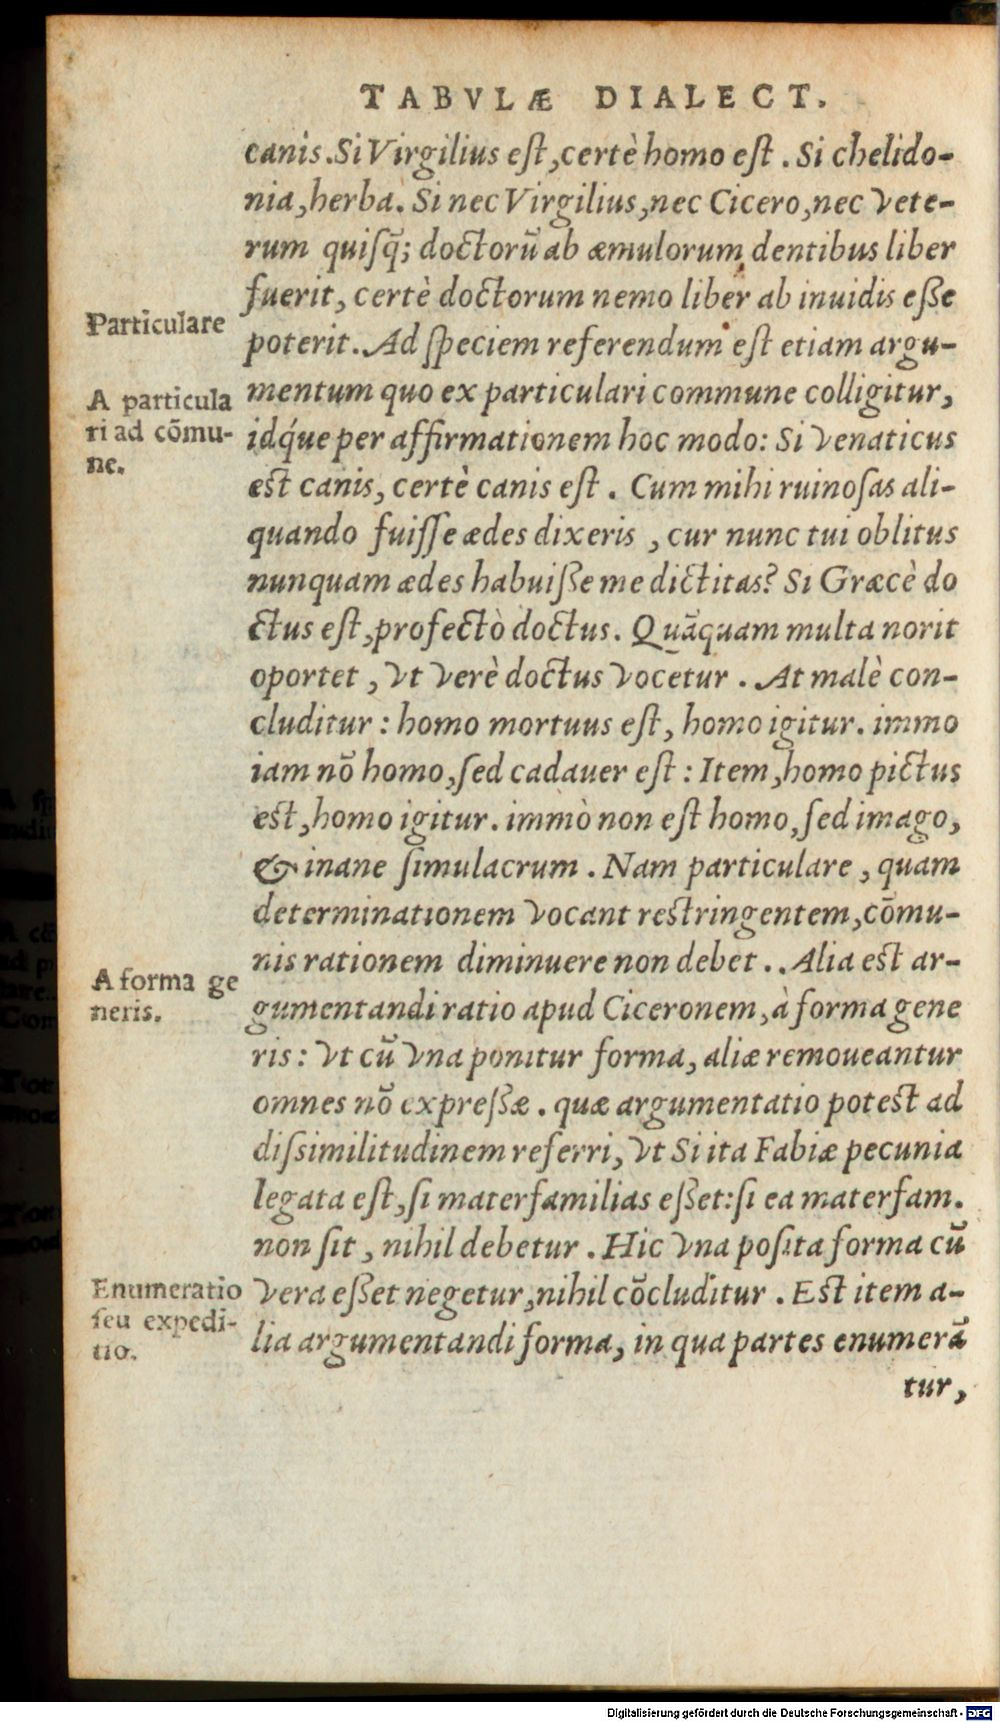 TABVLÆ DIALECT.
canis. Si Virgilius eſt, certè homo eſt. Si chelido-
nia, herba. Si nec Virgilius, nec Cicero, nec vete-
rum quiſq̃; doctorũ ab æmulorum dentibus liber
fuerit, certè doctorum nemo liber ab inuidis eſſe
Particulare
poterit. Ad ſpeciem referendum eſt etiam argu-
A particula
mentum quo ex particulari commune colligitur,
ri ad cõmu-
idq́ue per affirmationem hoc modo: Si venaticus
ne.
est canis, certè canis eſt. Cum mihi ruinoſas ali-
quando fuiſſe ædes dixeris, cur nunc tui oblitus
nunquam ædes habuiſſe me dictitas? Si Græcè do
ctus eſt, profectò doctus. Quãquam multa norit
oportet, vt verè doctus vocetur. At malè con-
cluditur: homo mortuus eſt, homo igitur. immo
iam nõ homo, ſed cadauer eſt: Item, homo pictus
est, homo igitur. immò non eſt homo, ſed imago,
& inane ſimulacrum. Nam particulare, quam
determinationem vocant restringentem, cõmu-
nis rationem diminuere non debet.. Alia est ar-
A forma ge
neris.
gumentandi ratio apud Ciceronem, à forma gene
ris: vt cũ vna ponitur forma, aliæ remoueantur
omnes nõ expreſſæ. quæ argumentatio potest ad
diſsimilitudinem referri, vt Si ita Fabiæ pecunia
legata eſt, ſi materfamilias eſſet: ſi ea materfam.
non ſit, nihil debetur. Hic vna poſita forma cũ
Enumeratio
vera eſſet negetur, nihil cõcluditur. Est item a-
ſeu expedi-
tio.
lia argumentandi forma, in qua partes enumerã
tur,
Digitalisierung gefördert durch die Deutsche Forschungsgemeinschaft - DFG